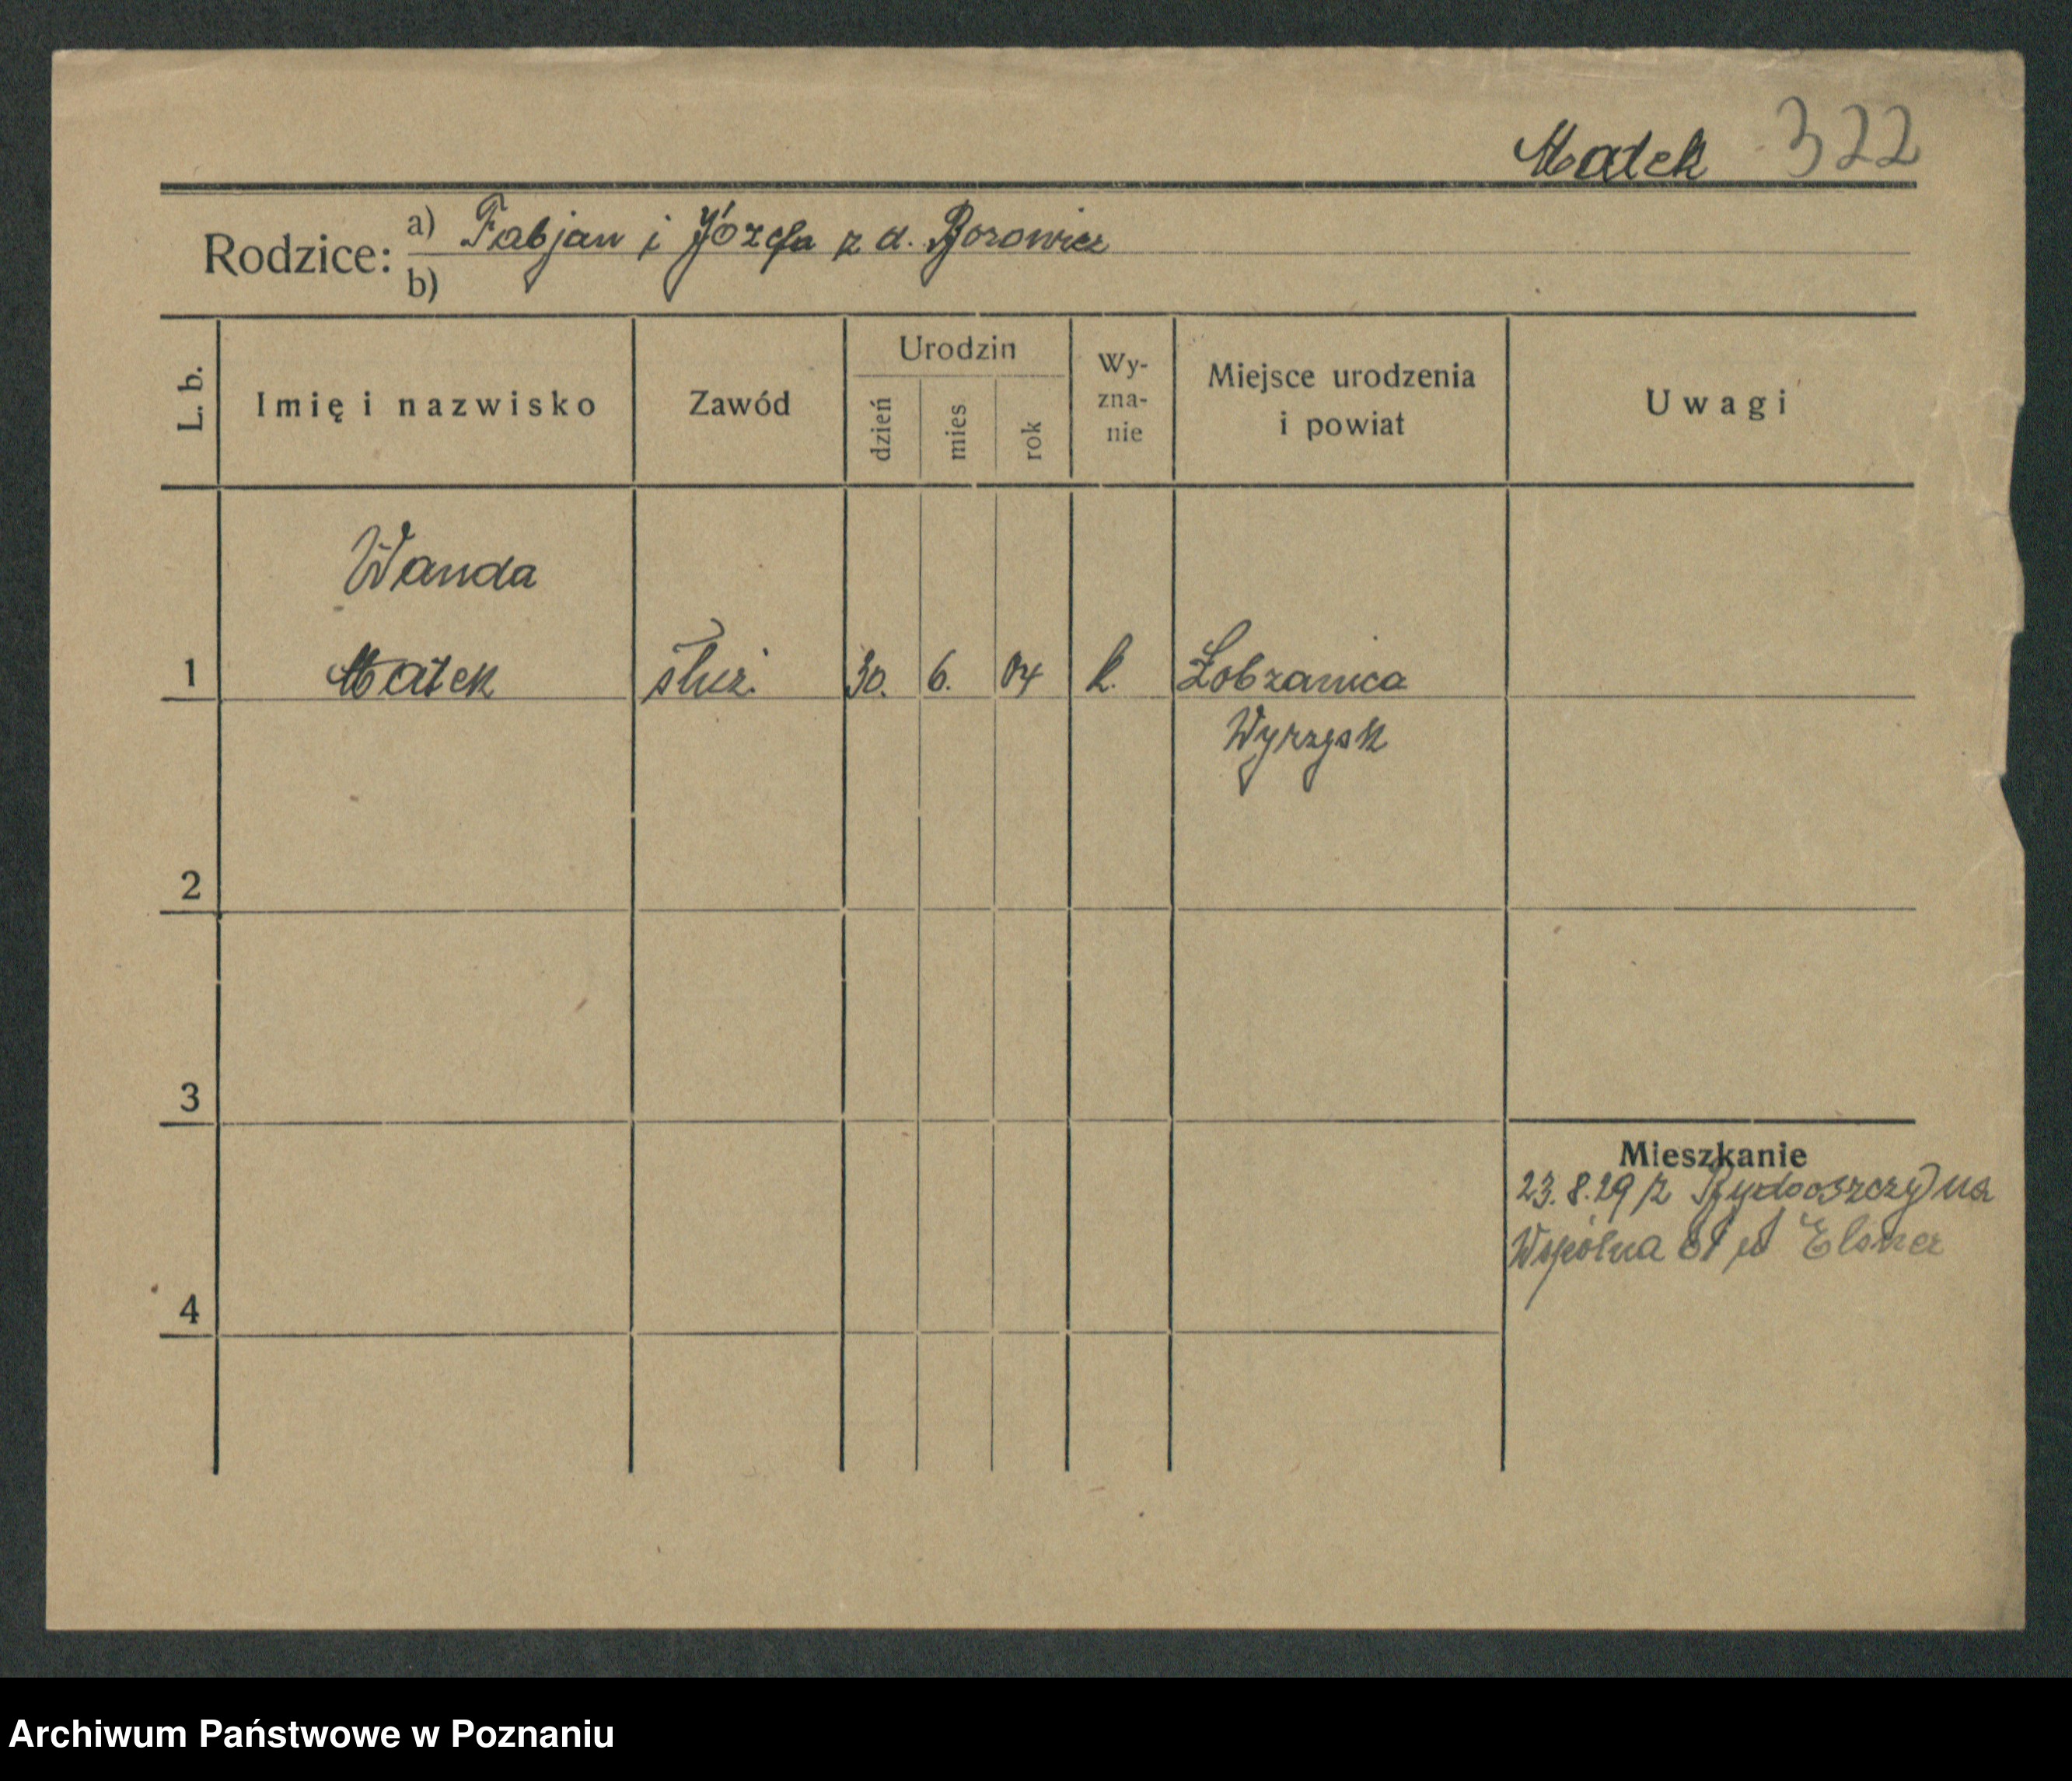 Matek 322
Rodzice: a) Fabjan i Józefa z d. Borowicz
b)
L. b. Imię i nazwisko Zawód Urodzin dzień mies rok Wy-zna-nie Miejsce urodzenia i powiat Uwagi
Wanda
1 Matek służ. 30. 6. 04 k. Łobzanica
Wyrzysk
2
3
Mieszkanie
23.8.29 z Bydgoszczy na
Wspólna 61 u Elsner
4
Archiwum Państwowe w Poznaniu